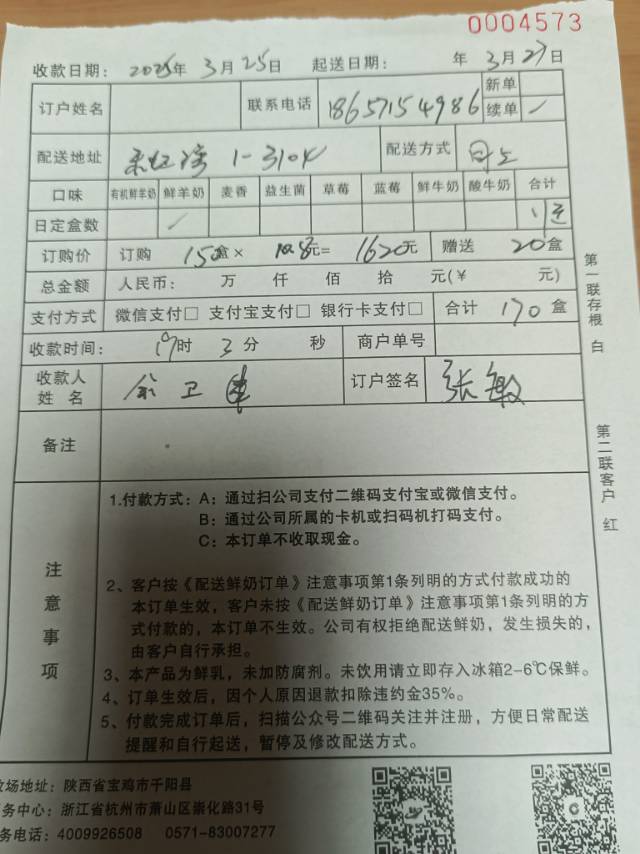 0004573
收款日期： 2025年 3月 25日 起送日期： 年 3月 27日
订户姓名 联系电话 18657154986 新单
续单 ✓
配送地址 1-3104 配送方式
口味 有机鲜羊奶 鲜羊奶 麦香 益生菌 草莓 蓝莓 鲜牛奶 酸牛奶 合计
日定盒数 ✓
订购价 订购 150盒× 10.8元= 1620元 赠送 20盒
总金额 人民币： 万 仟 佰 拾 元(￥ 元)
支付方式 微信支付□ 支付宝支付□ 银行卡支付□ 合计 170盒
收款时间： 时 3分 秒 商户单号
收款人
姓名 订户签名 张敏
备注
注意事项
1.付款方式：A：通过扫公司支付二维码支付宝或微信支付。
B：通过公司所属的卡机或扫码机打码支付。
C：本订单不收取现金。
2、客户按《配送鲜奶订单》注意事项第1条列明的方式付款成功的
本订单生效，客户未按《配送鲜奶订单》注意事项第1条列明的方
式付款的，本订单不生效。公司有权拒绝配送鲜奶，发生损失的，
由客户自行承担。
3、本产品为鲜乳，未加防腐剂。未饮用请立即存入冰箱2-6℃保鲜。
4、订单生效后，因个人原因退款扣除违约金35%。
5、付款完成订单后，扫描公众号二维码关注并注册，方便日常配送
提醒和自行起送，暂停及修改配送方式。
第一联存根 白
第二联客户 红
牧场地址：陕西省宝鸡市千阳县
务中心：浙江省杭州市萧山区崇化路31号
务电话：4009926508 0571-83007277